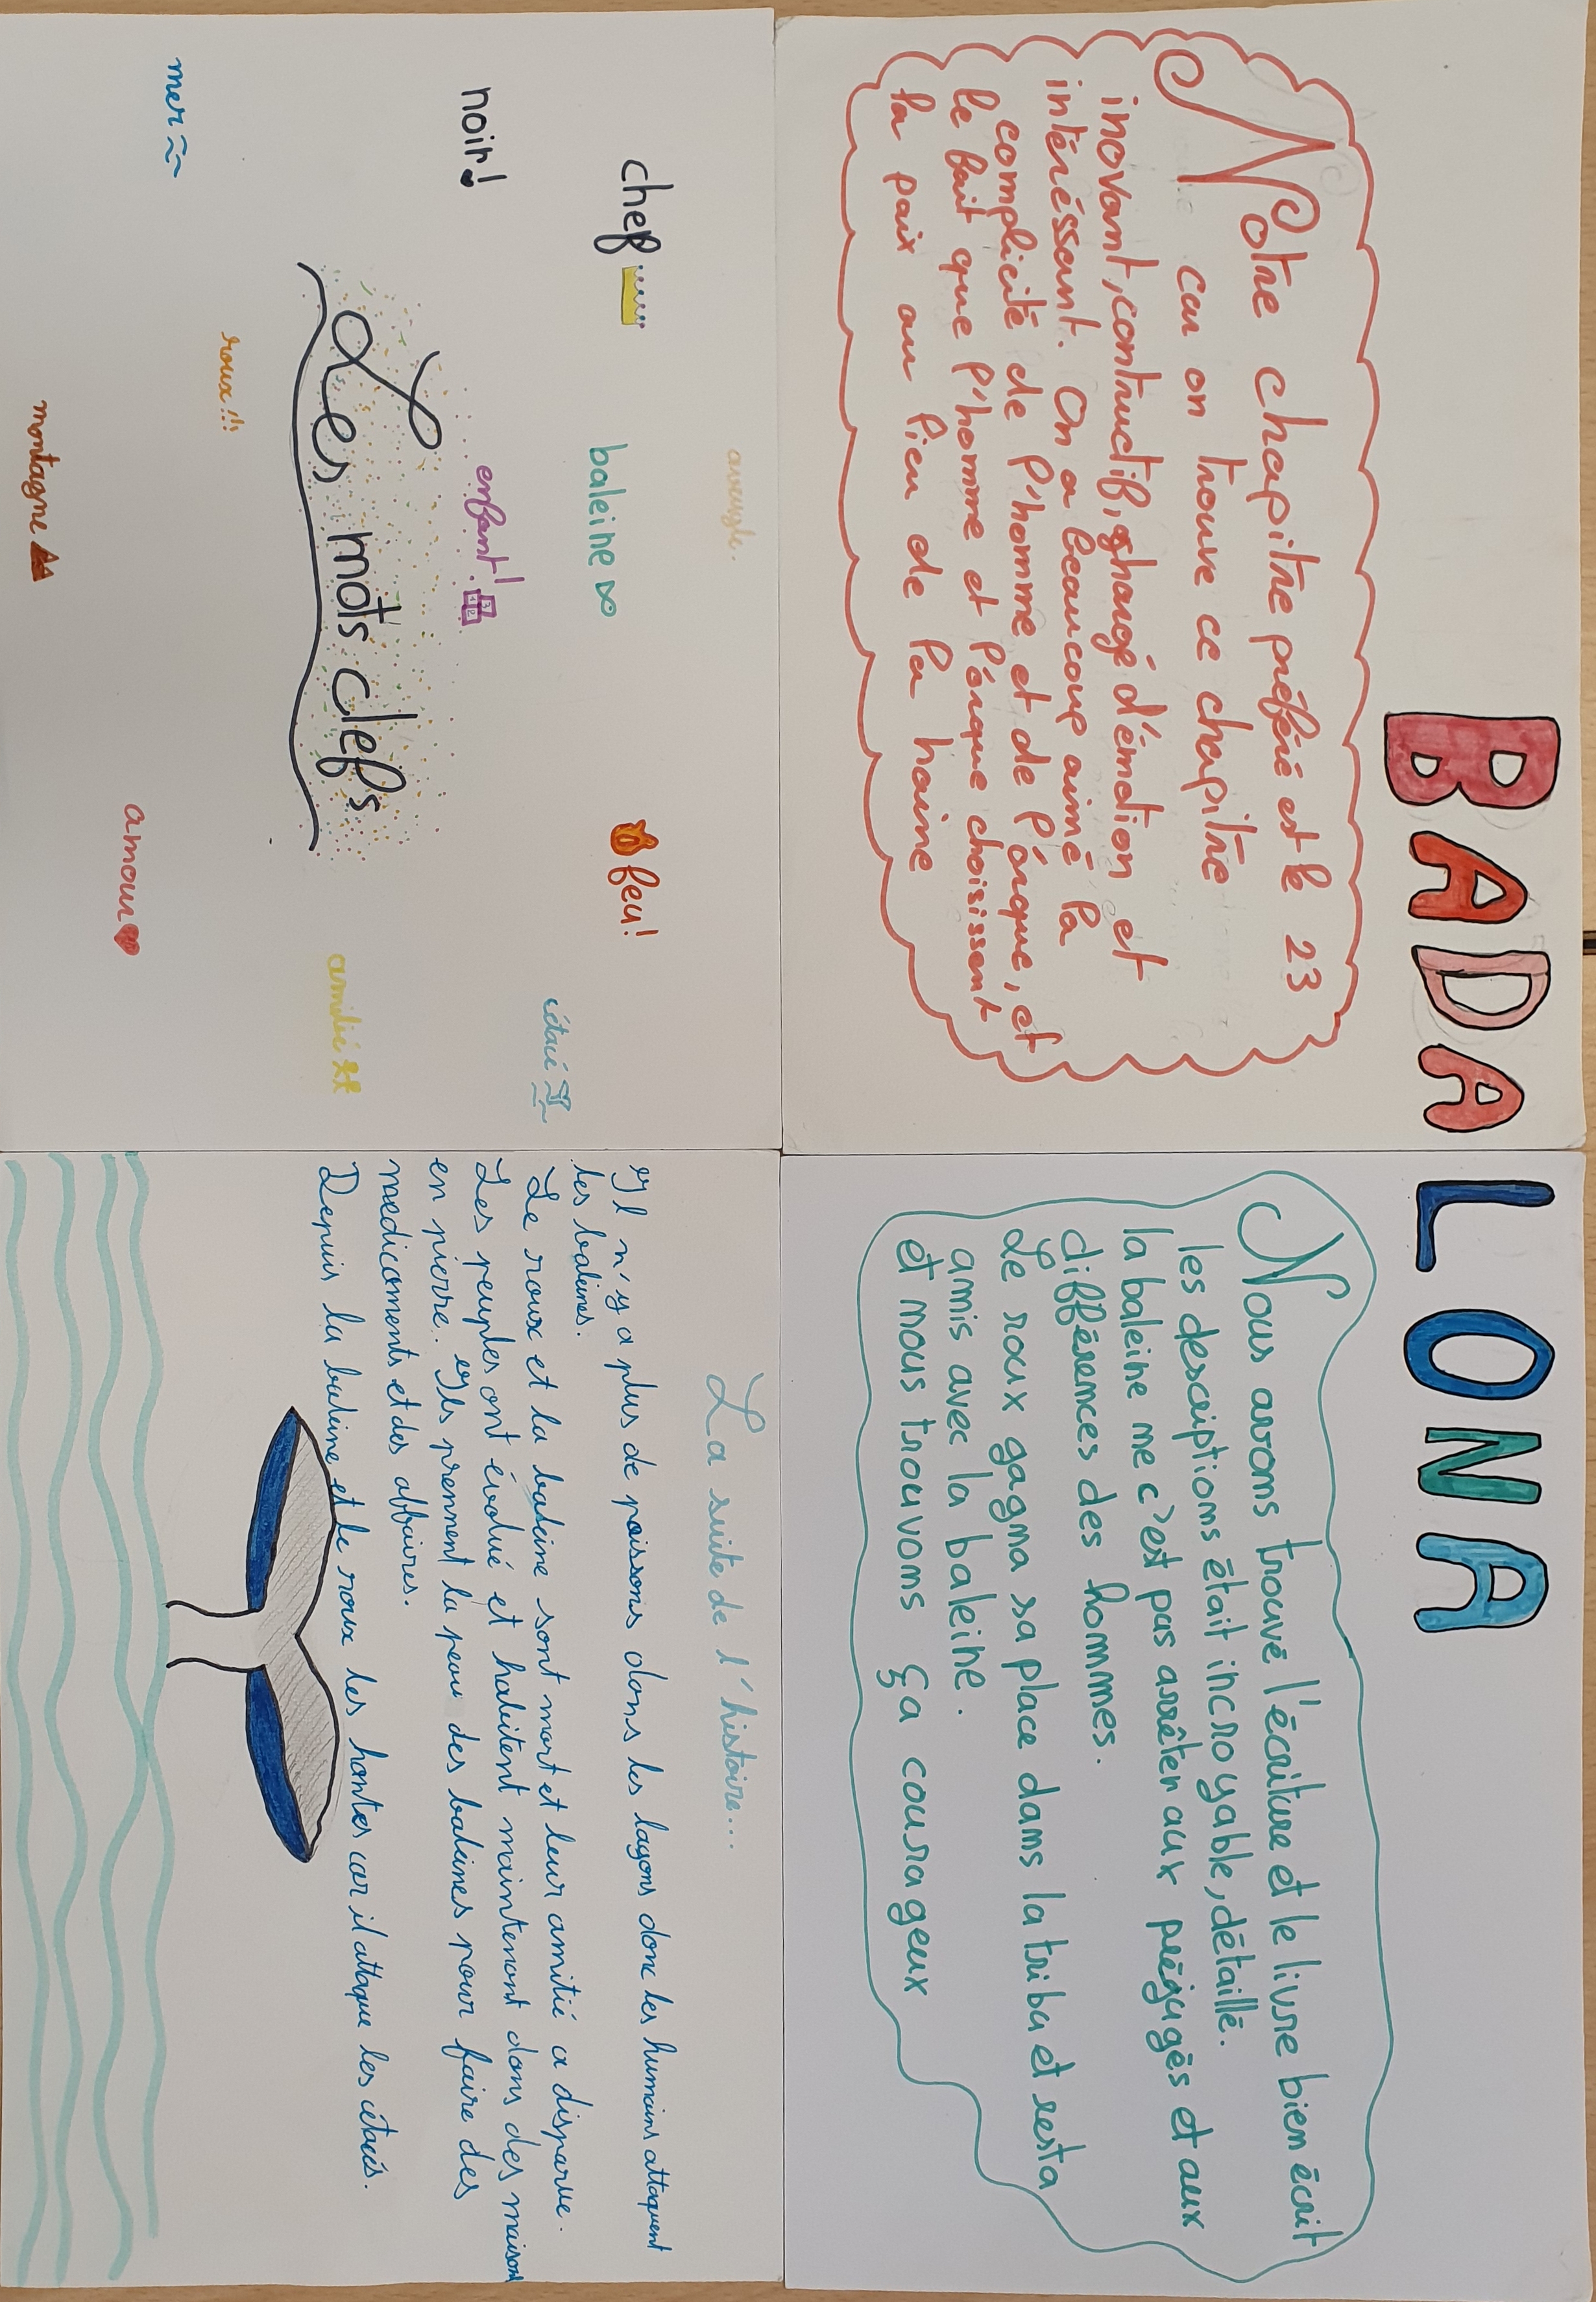 BADALONA
Notre chapitre préféré est le 23
car on trouve ce chapitre
inovant, contructif, chargé d'émotion et
intéréssant. On a beaucoup aimé la
complicité de l'homme et de l'orque, et
le fait que l'homme et l'orque choisissent
la paix au lieu de la haine
Nous avons trouvé l'écriture et le livre bien écrit
les descriptions était incroyable, détaillé.
la baleine me c'est pas arrêter aux préjugés et aux
différences des hommes.
Le roux gagna sa place dans la tribu et resta
amis avec la baleine.
et nous trouvons ça courageux
aveugle.
chef
baleine
feu!
noir!
enfant!
cétacé
Les mots clefs
roux!!
amitié
mer
amour
montagne
La suite de l'histoire...
Il n'y a plus de poissons dans les lagons donc les humains attaquent
les baleines.
Le roux et la baleine sont mort et leur amitié a disparue.
Les peuples ont évolué et habitent maintenant dans des maisons
en pierre. Ils prennent la peau des baleines pour faire des
medicaments et des affaires.
Depuis la baleine et le roux les hontes car il attaque les cétacés.